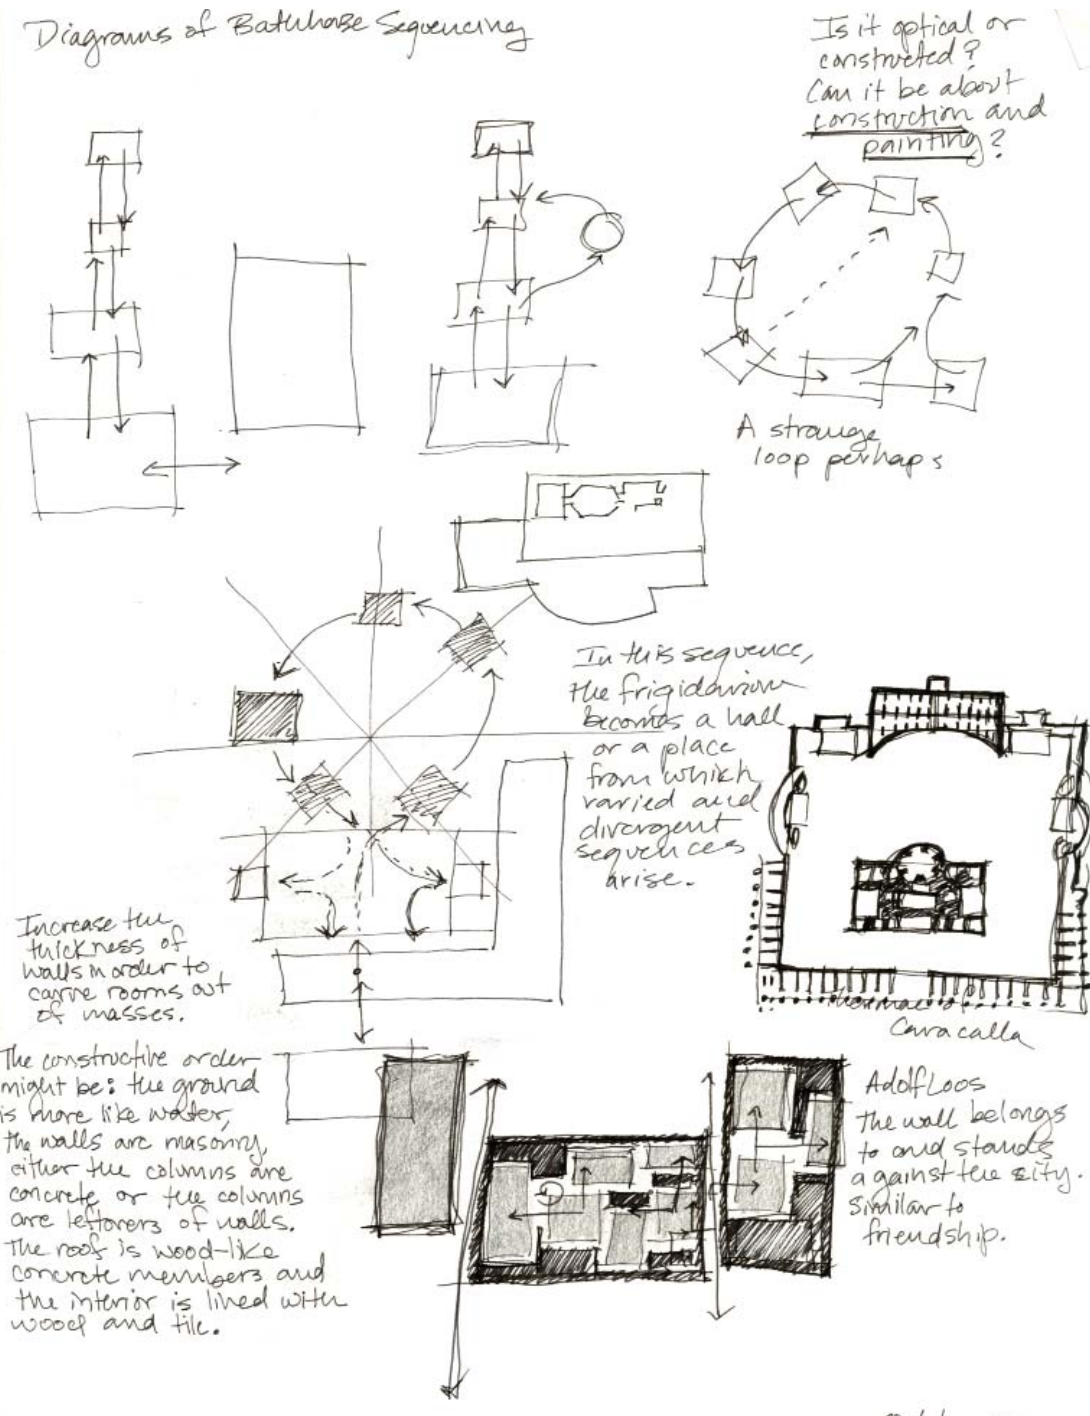 Diagrams of Bathhouse Sequencing
Is it optical or
constructed?
Can it be about
construction and
painting?
A strange
loop perhaps
In this sequence,
the frigidarium
becomes a hall
or a place
from which
varied and
divergent
sequences
arise.
Increase the
thickness of
walls in order to
carve rooms out
of masses.
Thermae of
Caracalla
The constructive order
might be: the ground
is more like water,
the walls are masonry,
either the columns are
concrete or the columns
are leftovers of walls.
The roof is wood-like
concrete members and
the interior is lined with
wood and tile.
Adolf Loos
The wall belongs
to and stands
against the city.
Similar to
friendship.